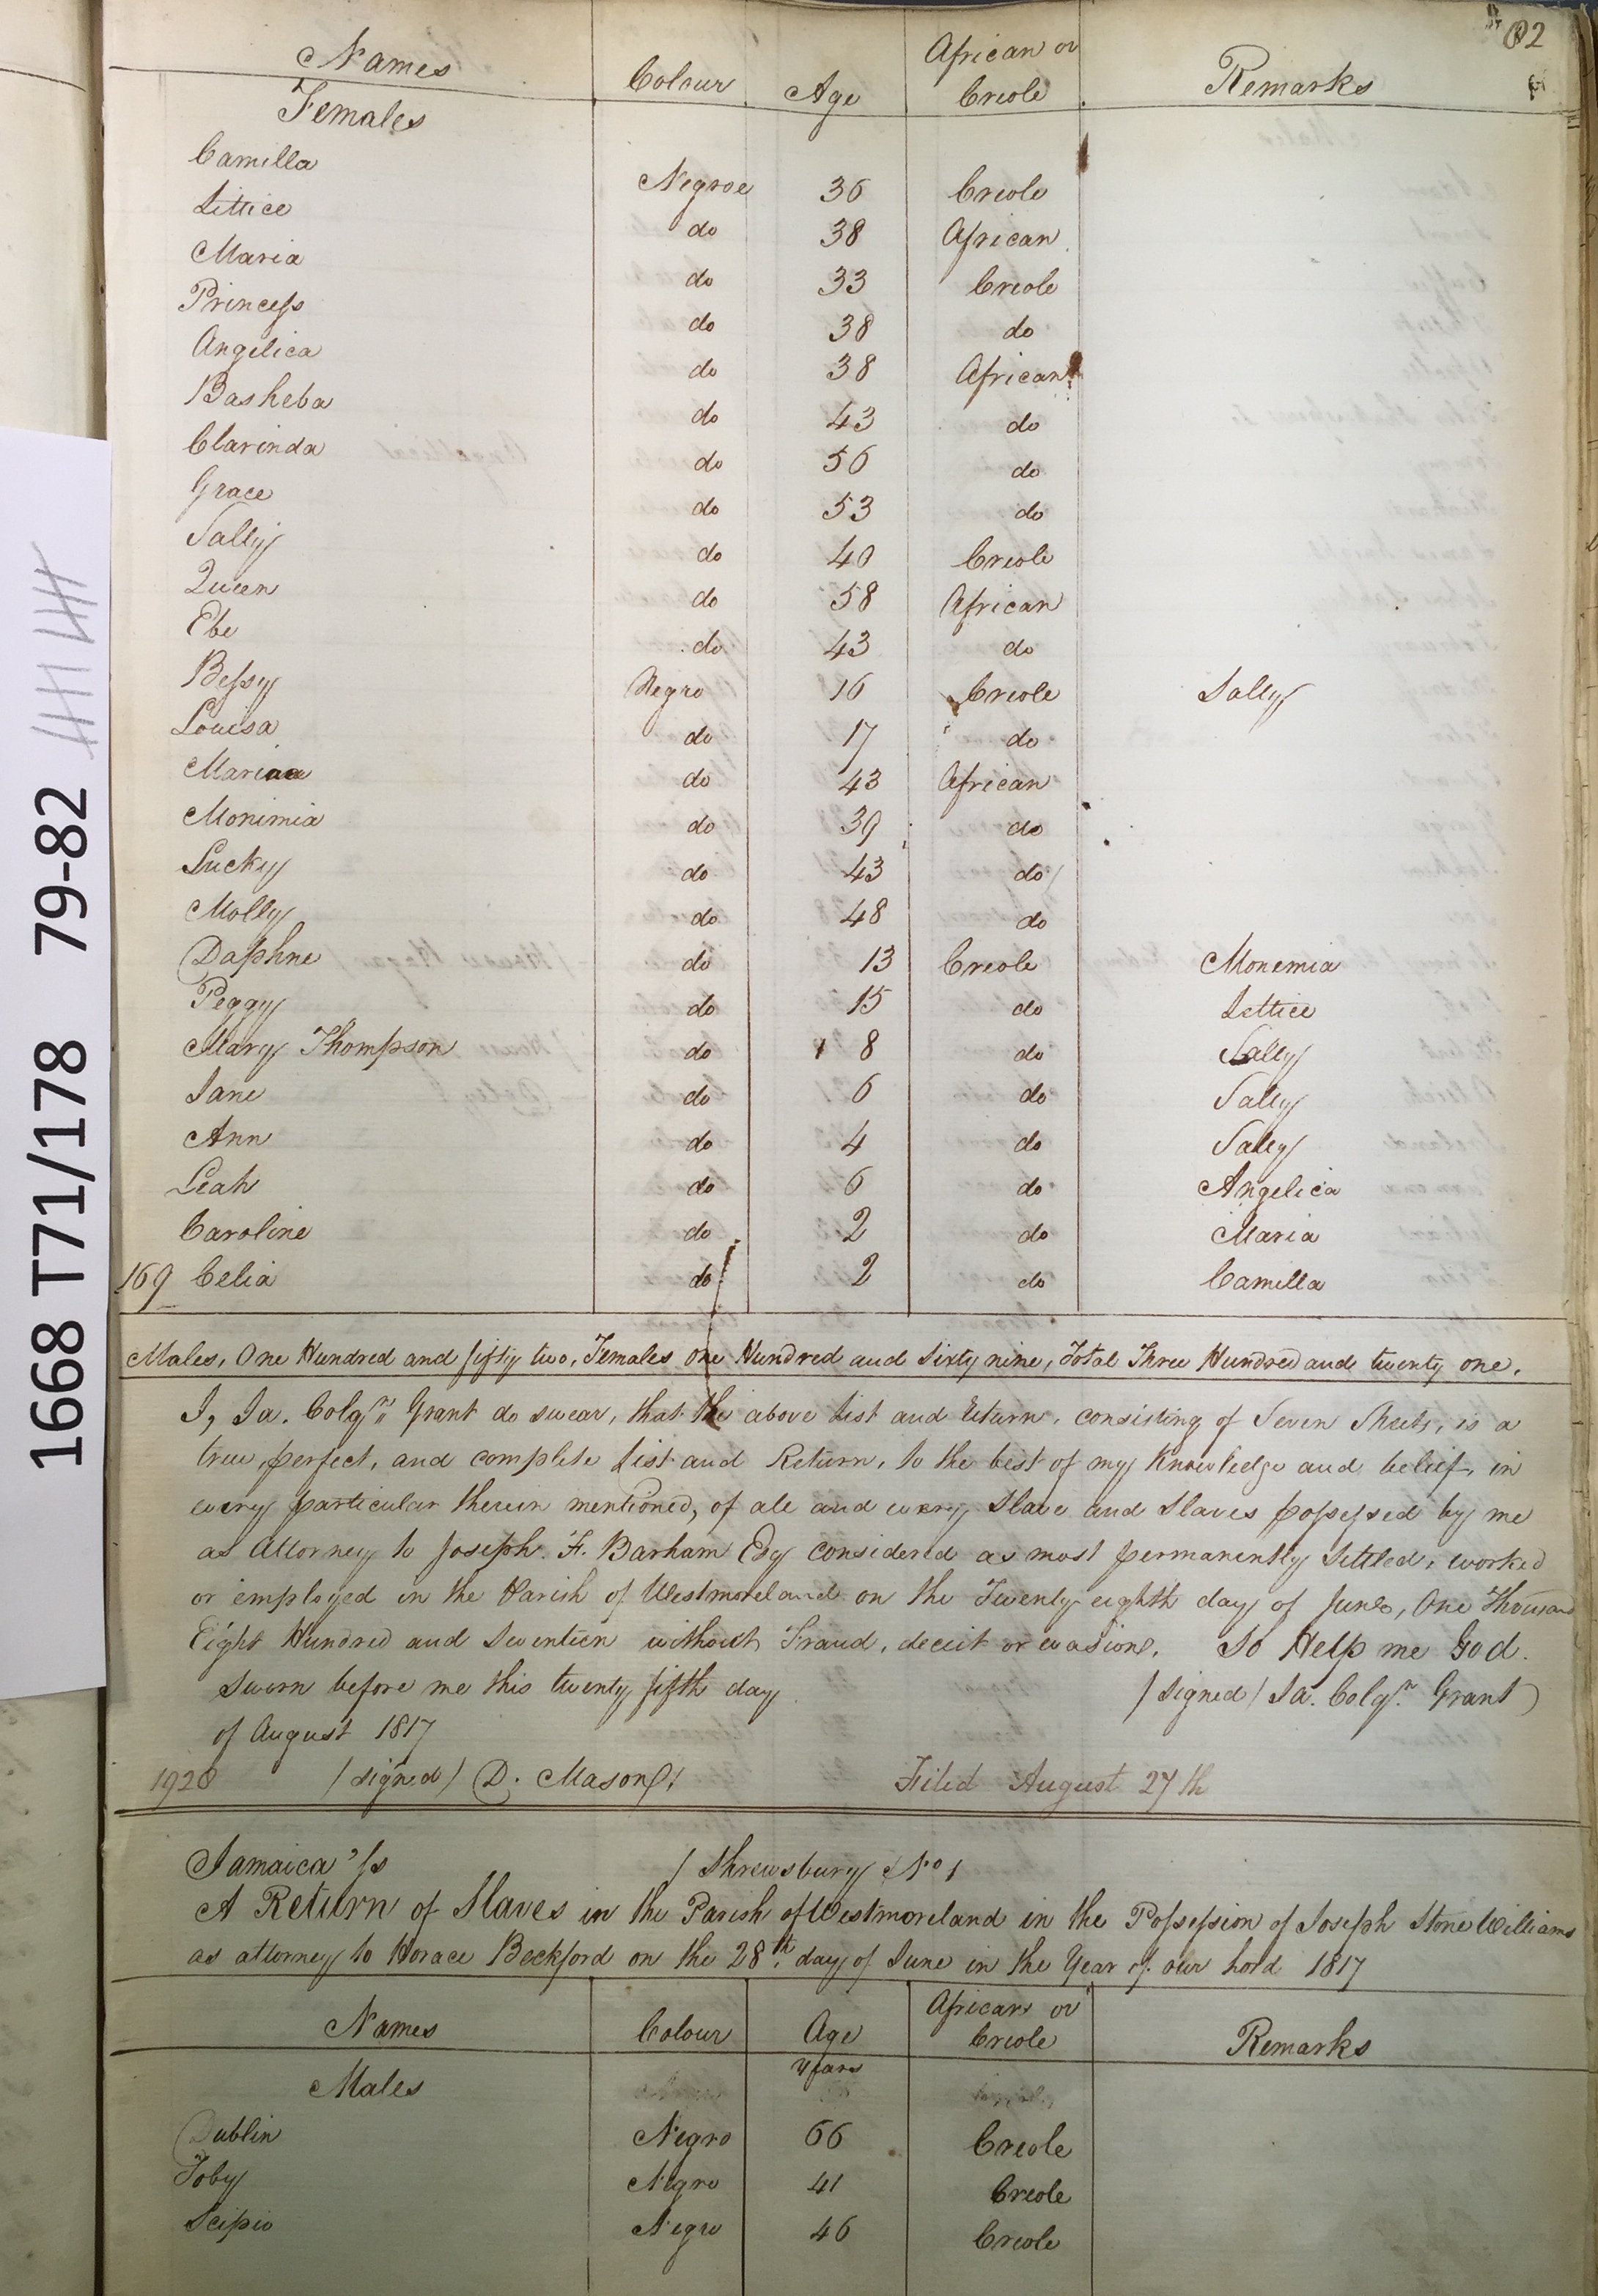 82
Names Colour Age African or Creole Remarks
Females
Camilla Negroe 36 Creole
Lettice do 38 African
Maria do 33 Creole
Princess do 38 do
Angelica do 38 African
Basheba do 43 do
Clarinda do 56 do
Grace do 53 do
Sally do 40 Creole
Queen do 58 African
Ebe do 43 do
Bessy Negro 16 Creole Sally
Louisa do 17 do
Mariaa do 43 African
Monimia do 39 do
Lucky do 43 do
Molly do 48 do
Daphne do 13 Creole Monemia
Peggy do 15 do Lettice
Mary Thompson do 8 do Sally
Jane do 6 do Sally
Ann do 4 do Sally
Leah do 6 do Angelica
Caroline do 2 do Maria
169 Celia do 2 do Camilla
Males, One Hundred and fifty two, Females One Hundred and Sixty nine, Total Three Hundred and twenty one.
I, Ja. Colqn. Grant do swear, that the above List and Return, consisting of Seven Sheets, is a
true, perfect, and complete List and Return, to the best of my Knowledge and belief, in
every particular therein mentioned, of all and every Slave and Slaves possessed by me
as Attorney to Joseph F. Barham Esq considered as most permanently settled, worked
or employed in the Parish of Westmoreland on the Twenty eighth day of June, One Thousand
Eight Hundred and Seventeen without Fraud, deceit or evasion. So Help me God.
Sworn before me this twenty fifth day /Signed/ Ja. Colqn. Grant
of August 1817
1920 /signed/ D. Mason Filed August 27th
Jamaica Ss / Shrewsbury No 1
A Return of Slaves in the Parish of Westmoreland in the Possession of Joseph Stone Williams
as attorney to Horace Beckford on the 28th. day of June in the Year of our Lord 1817
Names Colour Age African or Creole Remarks
Years
Males
Dublin Negro 66 Creole
Toby Negro 41 Creole
Scipio Negro 46 Creole
1668 T71/178 79-82